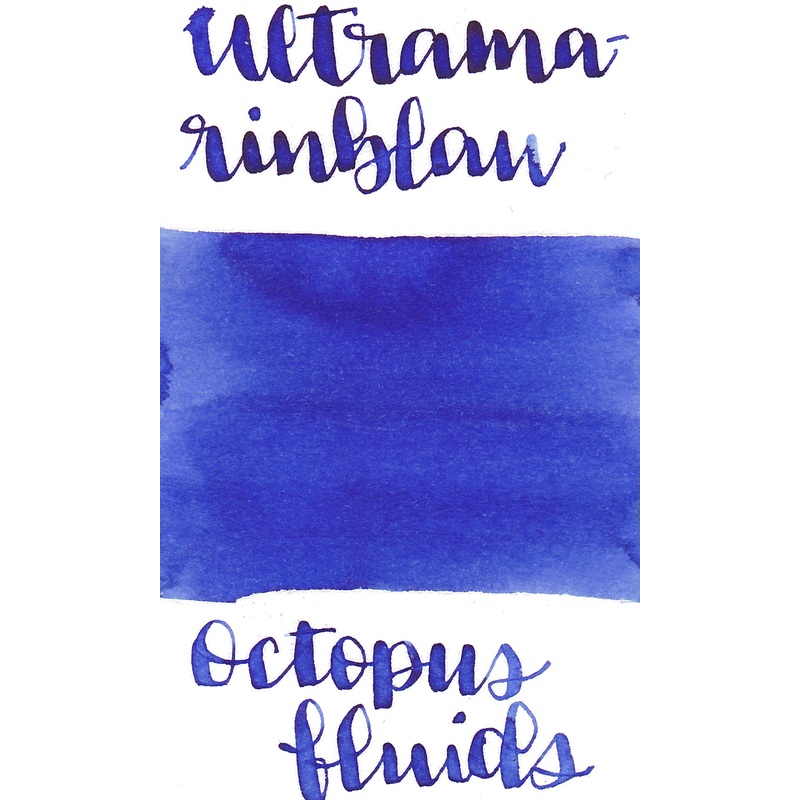 Ultrama-
rinblau
Octopus
fluids